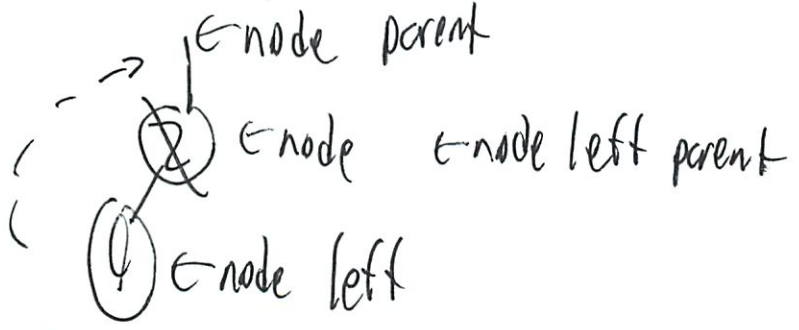 ←node parent
2 ←node ←node left parent
1 ←node left